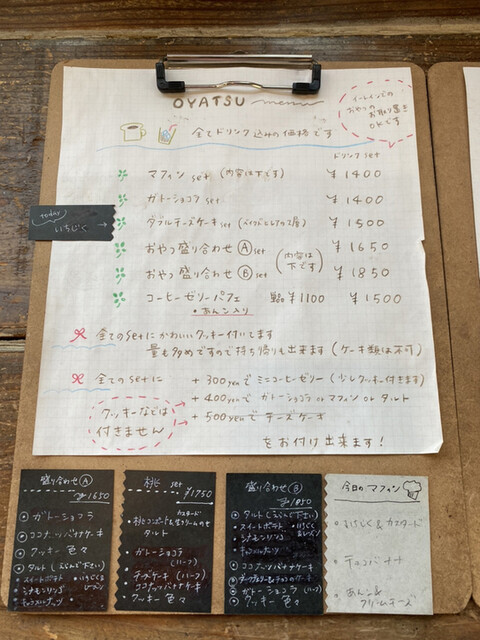 OYATSU menu
イートインでの
おやつの
お取り置き
OKです
全てドリンク込みの価格です
ドリンク set
マフィン set (内容は下です) ¥1400
ガトーショコラ set ¥1400
today いちじく →
ダブルチーズケーキ set ¥1500
おやつ盛り合わせ Ⓐ set ¥1650
おやつ盛り合わせ Ⓑ set ¥1850
(内容は下です)
コーヒーゼリーパフェ 単品 ¥1100 ¥1500
・あんこ入り
全てのsetにかわいいクッキー付いてます
量も多めですので持ち帰りも出来ます (ケーキ類は不可)
全てのsetに +300yenで ミニコーヒーゼリー (少しクッキー付きます)
+400yenで ガトーショコラ or マフィン or タルト
+500yenで チーズケーキ
をお付け出来ます!
クッキーなどは
付きません
盛り合わせ Ⓐ
¥1650
ガトーショコラ
ココナッツバナナケーキ
クッキー 色々
タルト (えらんで下さい)
・スイートポテト ・いちじく&レーズン
・シナモンリンゴ
・キャラメルナッツ
桃 set
¥1750
カスタード
・桃コンポート&生クリームのせ
タルト
・ガトーショコラ
(ハーフ)
・チーズケーキ (ハーフ)
・ココナッツバナナケーキ
・クッキー 色々
盛り合わせ Ⓑ
¥1850
タルト (えらんで下さい)
・スイートポテト ・いちじく&レーズン
・シナモンリンゴ
・キャラメルナッツ
ココナッツバナナケーキ
ガトーショコラ (ハーフ)
クッキー 色々
今日のマフィン
・いちじく&カスタード
・チョコバナナ
・あんこ&
クリームチーズ